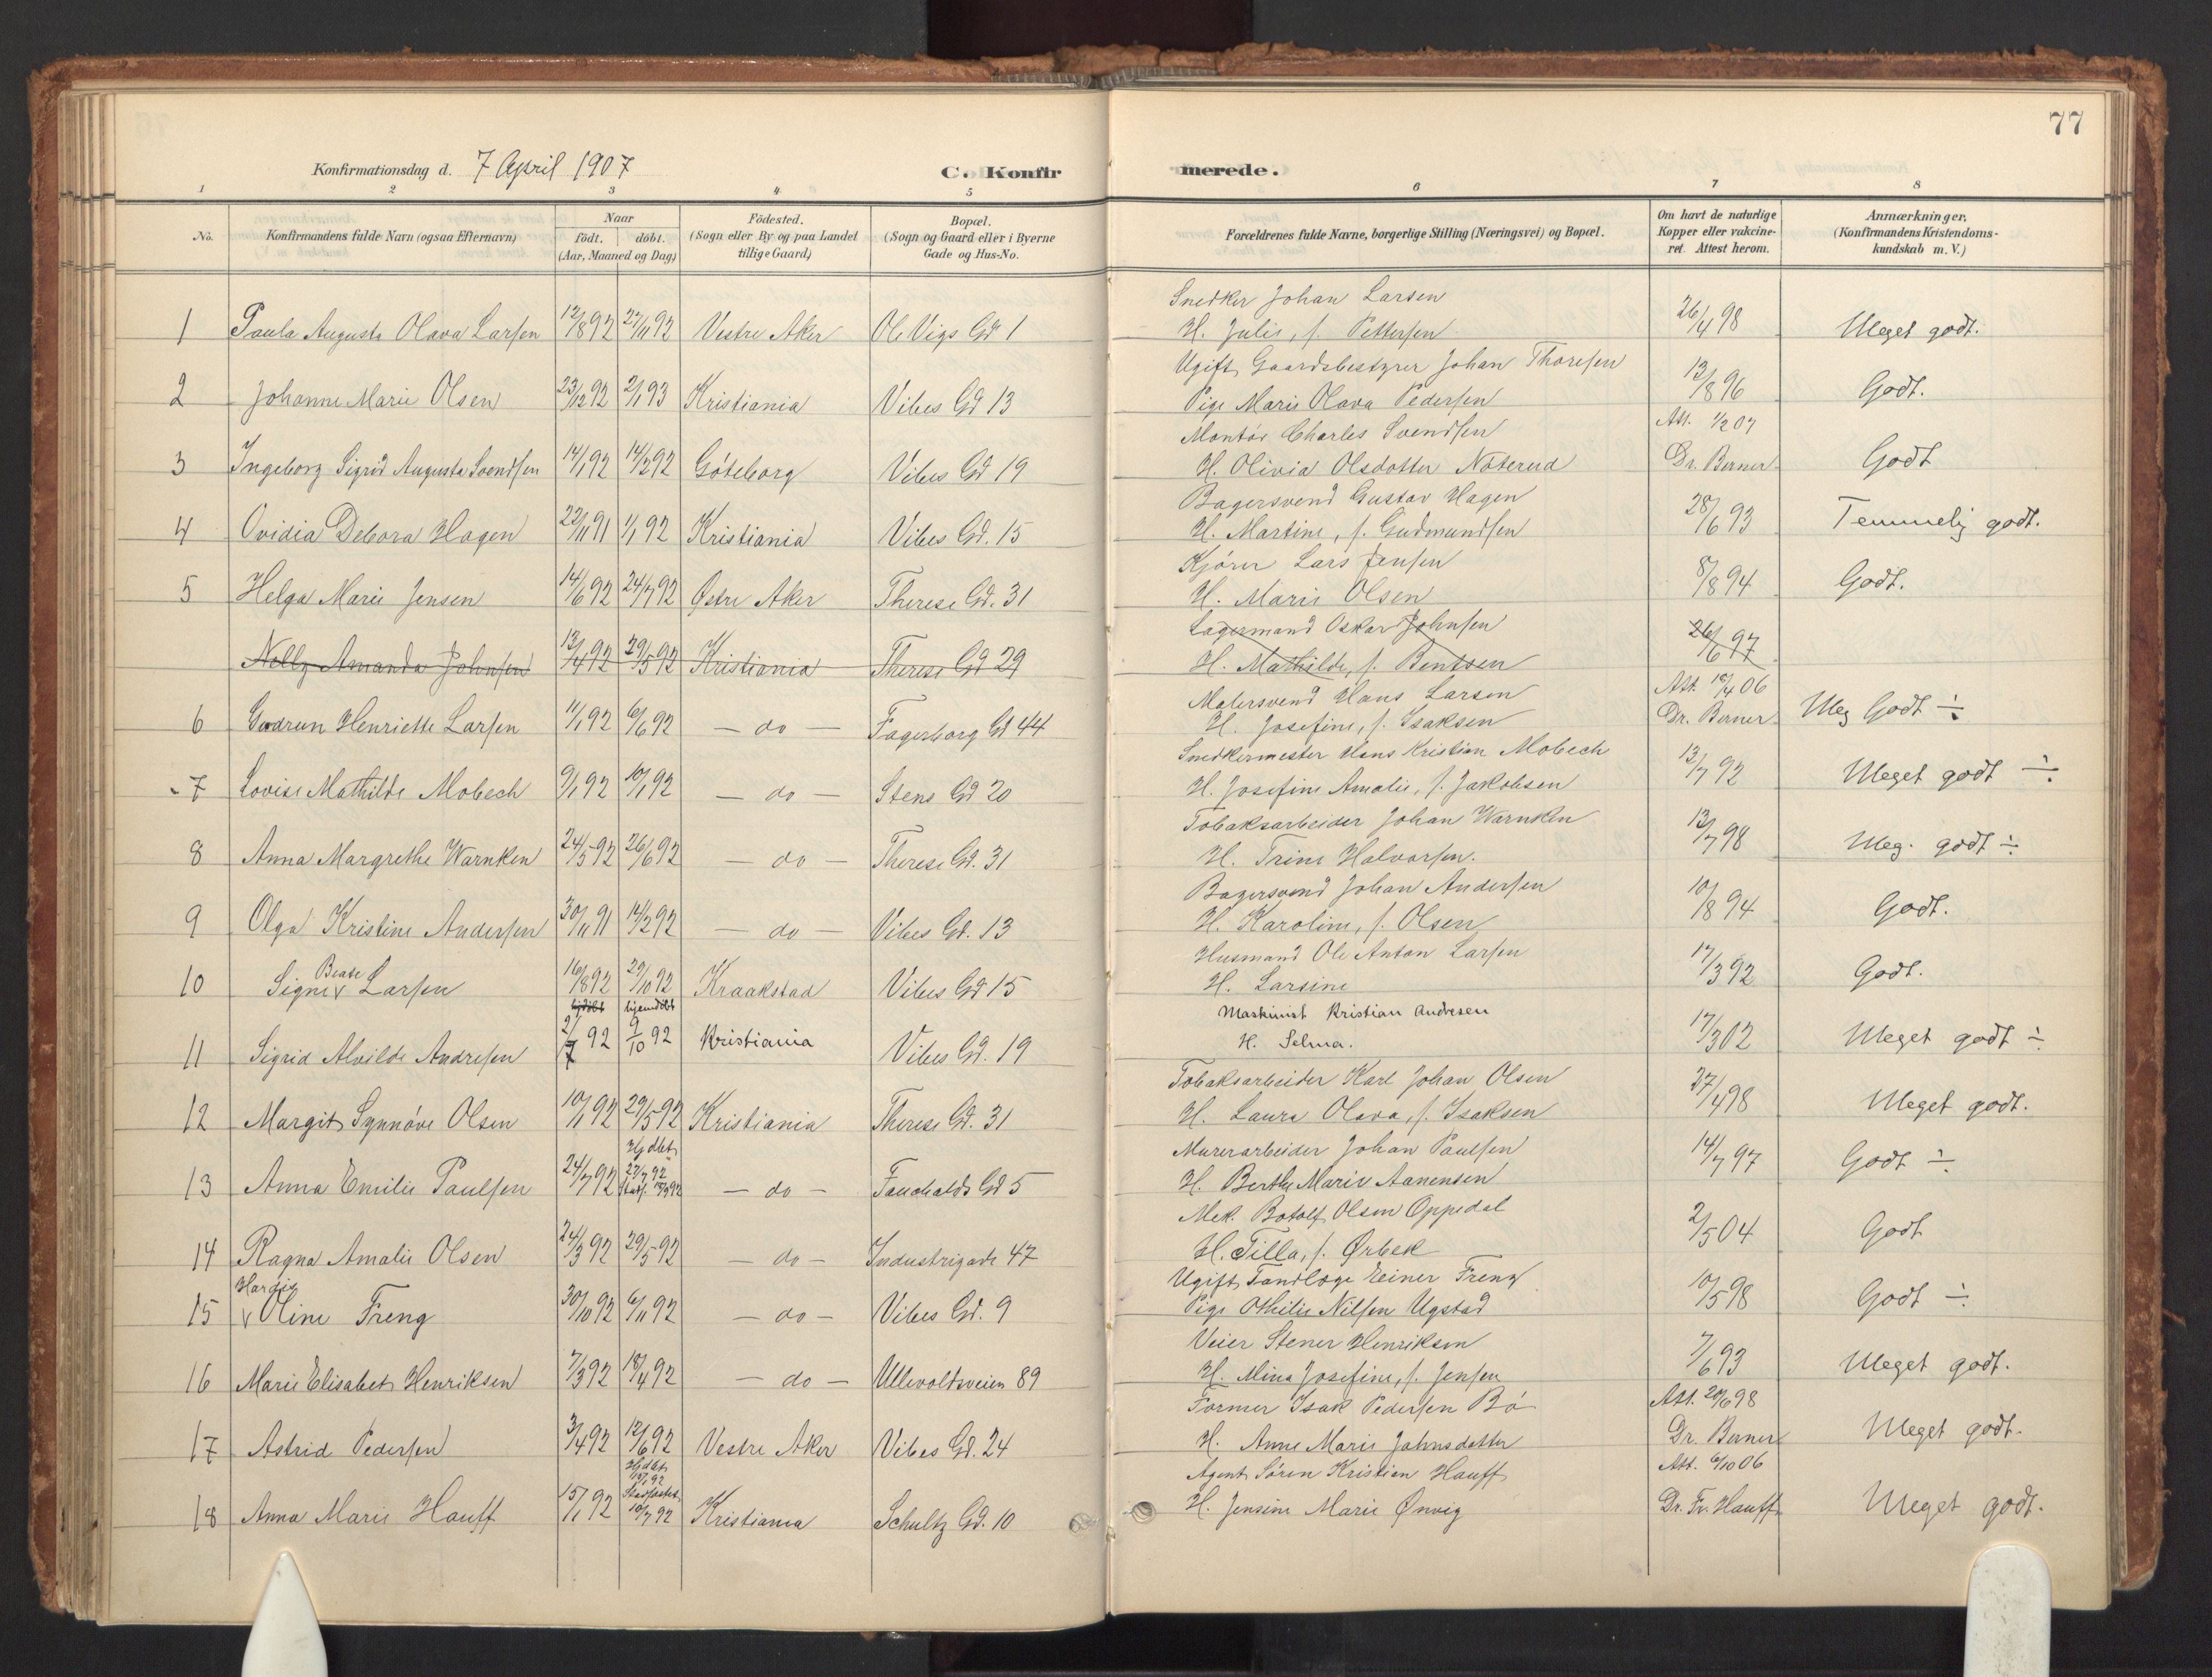 77
Konfirmationsdag d. 7 April 1907 C. Konfirmerede.
1 2 3 4 5 6 7 8
No. Konfirmandens fulde Navn (ogsaa Efternavn) Naar födt. döbt. (Aar, Maaned og Dag) Födested. (Sogn eller By og paa Landet tillige Gaard) Bopæl. (Sogn og Gaard eller i Byerne Gade og Hus-No. Forældrenes fulde Navne, borgerlige Stilling (Næringsvei) og Bopæl. Om havt de naturlige Kopper eller vakcineret. Attest herom. Anmærkninger. (Konfirmandens Kristendomskundskab m. V.)
Snedker Johan Larsen
1 Paula Augusta Olava Larsen 12/8 92 27/11 92 Vestre Aker Ole Vigs Gd 1 H. Julie, f. Pettersen 26/4 98 Meget godt.
Ugift Gaardsbestyrer Johan Thoresen
2 Johanne Marie Olsen 23/12 92 2/1 93 Kristiania Vibes Gd 13 Pige Marie Olava Pedersen 13/8 96 Godt.
Montör Charles Svendsen Att. 1/2 07
3 Ingeborg Sigrid Augusta Svendsen 14/1 92 14/2 92 Göteborg Vibes Gd 19 H. Olivia Olsdotter Noterud Dr. Berner Godt
Bagersvend Gustav Hagen
4 Ovidia Debora Hagen 22/11 91 1/1 92 Kristiania Vibes Gd. 15 H. Martine, f. Gudmundsen 28/6 93 Temmelig godt.
Kjörer Lars Jensen
5 Helga Marie Jensen 14/6 92 24/7 92 Østre Aker Therese Gd. 31 H. Marie Olsen 8/8 94 Godt.
Lagermand Oskar Johnsen
Nelly Amanda Johnsen 13/4 92 29/5 92 Kristiania Therese Gd 29 H. Mathilde, f. Bentsen 26/6 97
Malersvend Hans Larsen Att. 18/4 06
6 Gudrun Henriette Larsen 11/1 92 6/6 92 - do - Fagerborg Gd 44 H. Josefine, f. Isaksen Dr. Berner Meg Godt ÷
Snedkermester Hans Kristian Mobech
7 Lovise Mathilde Mobech 9/1 92 10/1 92 - do - Stens Gd 20 H. Josefine Amalie, f. Jakobsen 13/7 92 Meget godt ÷
Tobaksarbeider Johan Warnken
8 Anna Margrethe Warnken 24/5 92 26/6 92 - do - Therese Gd. 31 H. Trine Halvorsen. 13/7 98 Meg. godt ÷
Bagersvend Johan Andersen
9 Olga Kristine Andersen 30/11 91 14/2 92 - do - Vibes Gd. 13 H. Karoline, f. Olsen 10/8 94 Godt.
Husmand Ole Anton Larsen
10 Signe Beate Larsen 16/8 92 29/10 92 Kraakstad Vibes Gd 15 H. Larsine 17/3 92 Godt.
hjdöbt hjemdöbt Maskinist Kristian Andresen
11 Sigrid Alvilde Andresen 2/7 92 9/10 92 Kristiania Vibes Gd. 19 H. Selma. 17/3 02 Meget godt ÷
Tobaksarbeider Karl Johan Olsen
12 Margit Synnöve Olsen 10/1 92 29/5 92 Kristiania Therese Gd. 31 H. Laura Olava, f. Isaksen 27/4 98 Meget godt.
Hjdbt Murerarbeider Johan Paulsen
13 Anna Emilie Paulsen 24/7 92 27/7 92 - do - Fauchalds Gd 5 H. Berthe Marie Aanensen 14/7 97 Godt ÷
Mek. Botolf Olsen Oppedal
14 Ragna Amalie Olsen 24/3 92 29/5 92 - do - Industrigade 47 H. Tilla, f. Ørbek 2/5 04 Godt
Ugift Tandlæge Einer Freng
15 Hardis Oline Freng 30/10 92 6/11 92 - do - Vibes Gd. 9 Pige Othilie Nilsen Ugstad 10/5 98 Godt ÷
Veier Stener Henriksen
16 Marie Elisabet Henriksen 7/3 92 18/4 92 - do - Ullevoldsveien 89 H. Mina Josefine, f. Jensen 7/6 93 Meget godt.
Former Isak Pedersen Bö Att. 20/6 98
17 Astrid Pedersen 3/4 92 12/6 92 Vestre Aker Vibes Gd. 24 H. Anne Marie Johnsdatter Dr. Berner Meget godt.
Hjdbt Agent Sören Kristian Hauff Att. 6/10 06
18 Anna Marie Hauff 15/1 92 Stadfæstet 10/7 92 Kristiania Schultz Gd. 10 H. Jensine Marie Ønvig Dr. Fr. Hauff Meget godt.